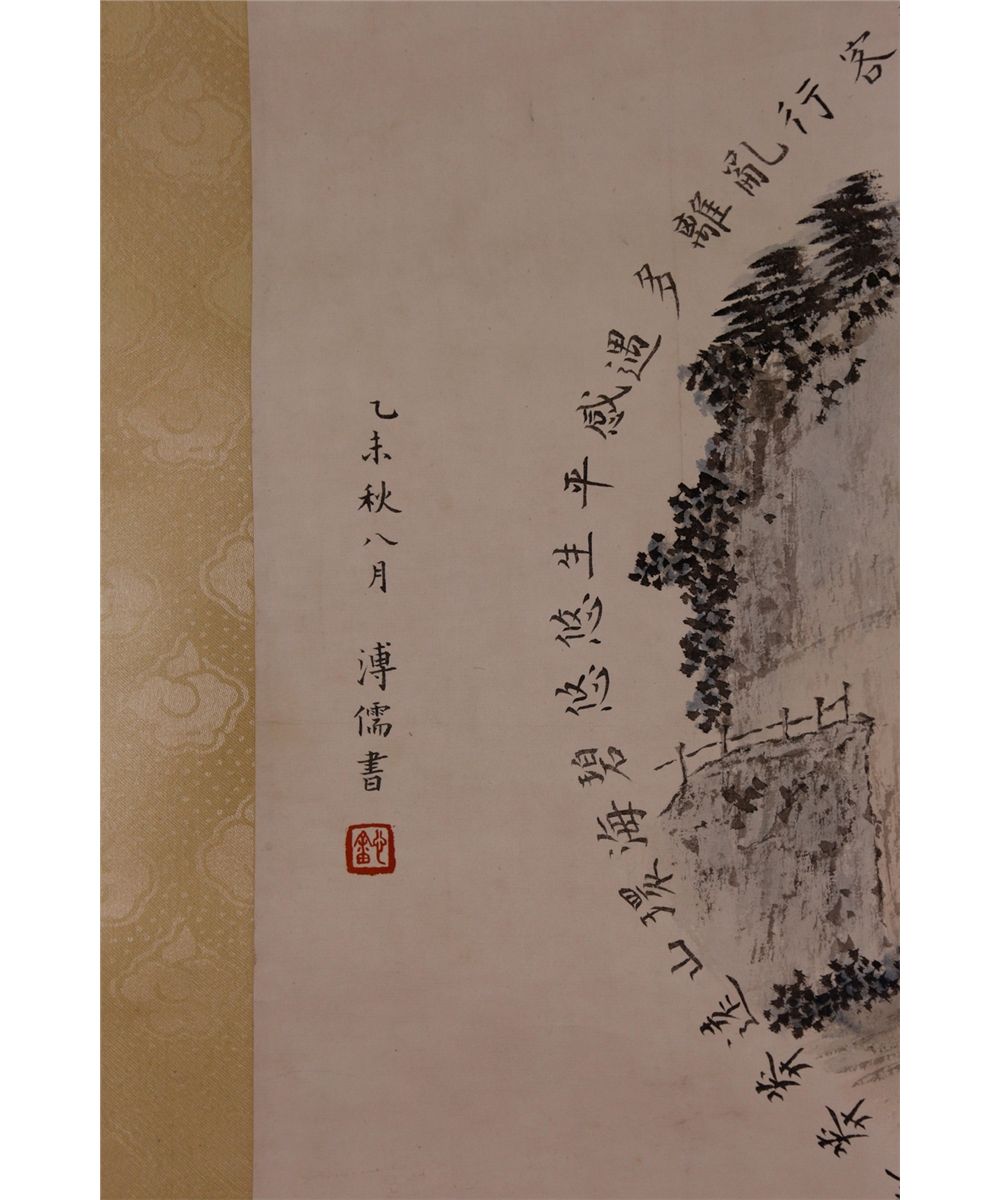 客行亂離多遇感平生悠悠碧海環山遠
乙未秋八月 溥儒書
心畬